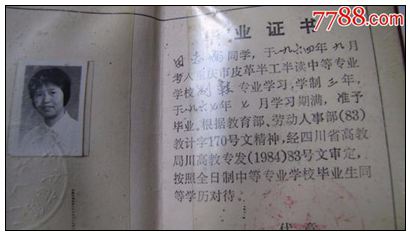 7788.com
毕业证书
同学，于一九六四年九月
考入重庆市皮革半工半读中等专业
学校制鞋专业学习，学制三年，
于一九六七年七月学习期满，准予
毕业。根据教育部、劳动人事部(83)
教计字170号文精神，经四川省高教
局川高教专发(1984)83号文审定，
按照全日制中等专业学校毕业生同
等学历对待。